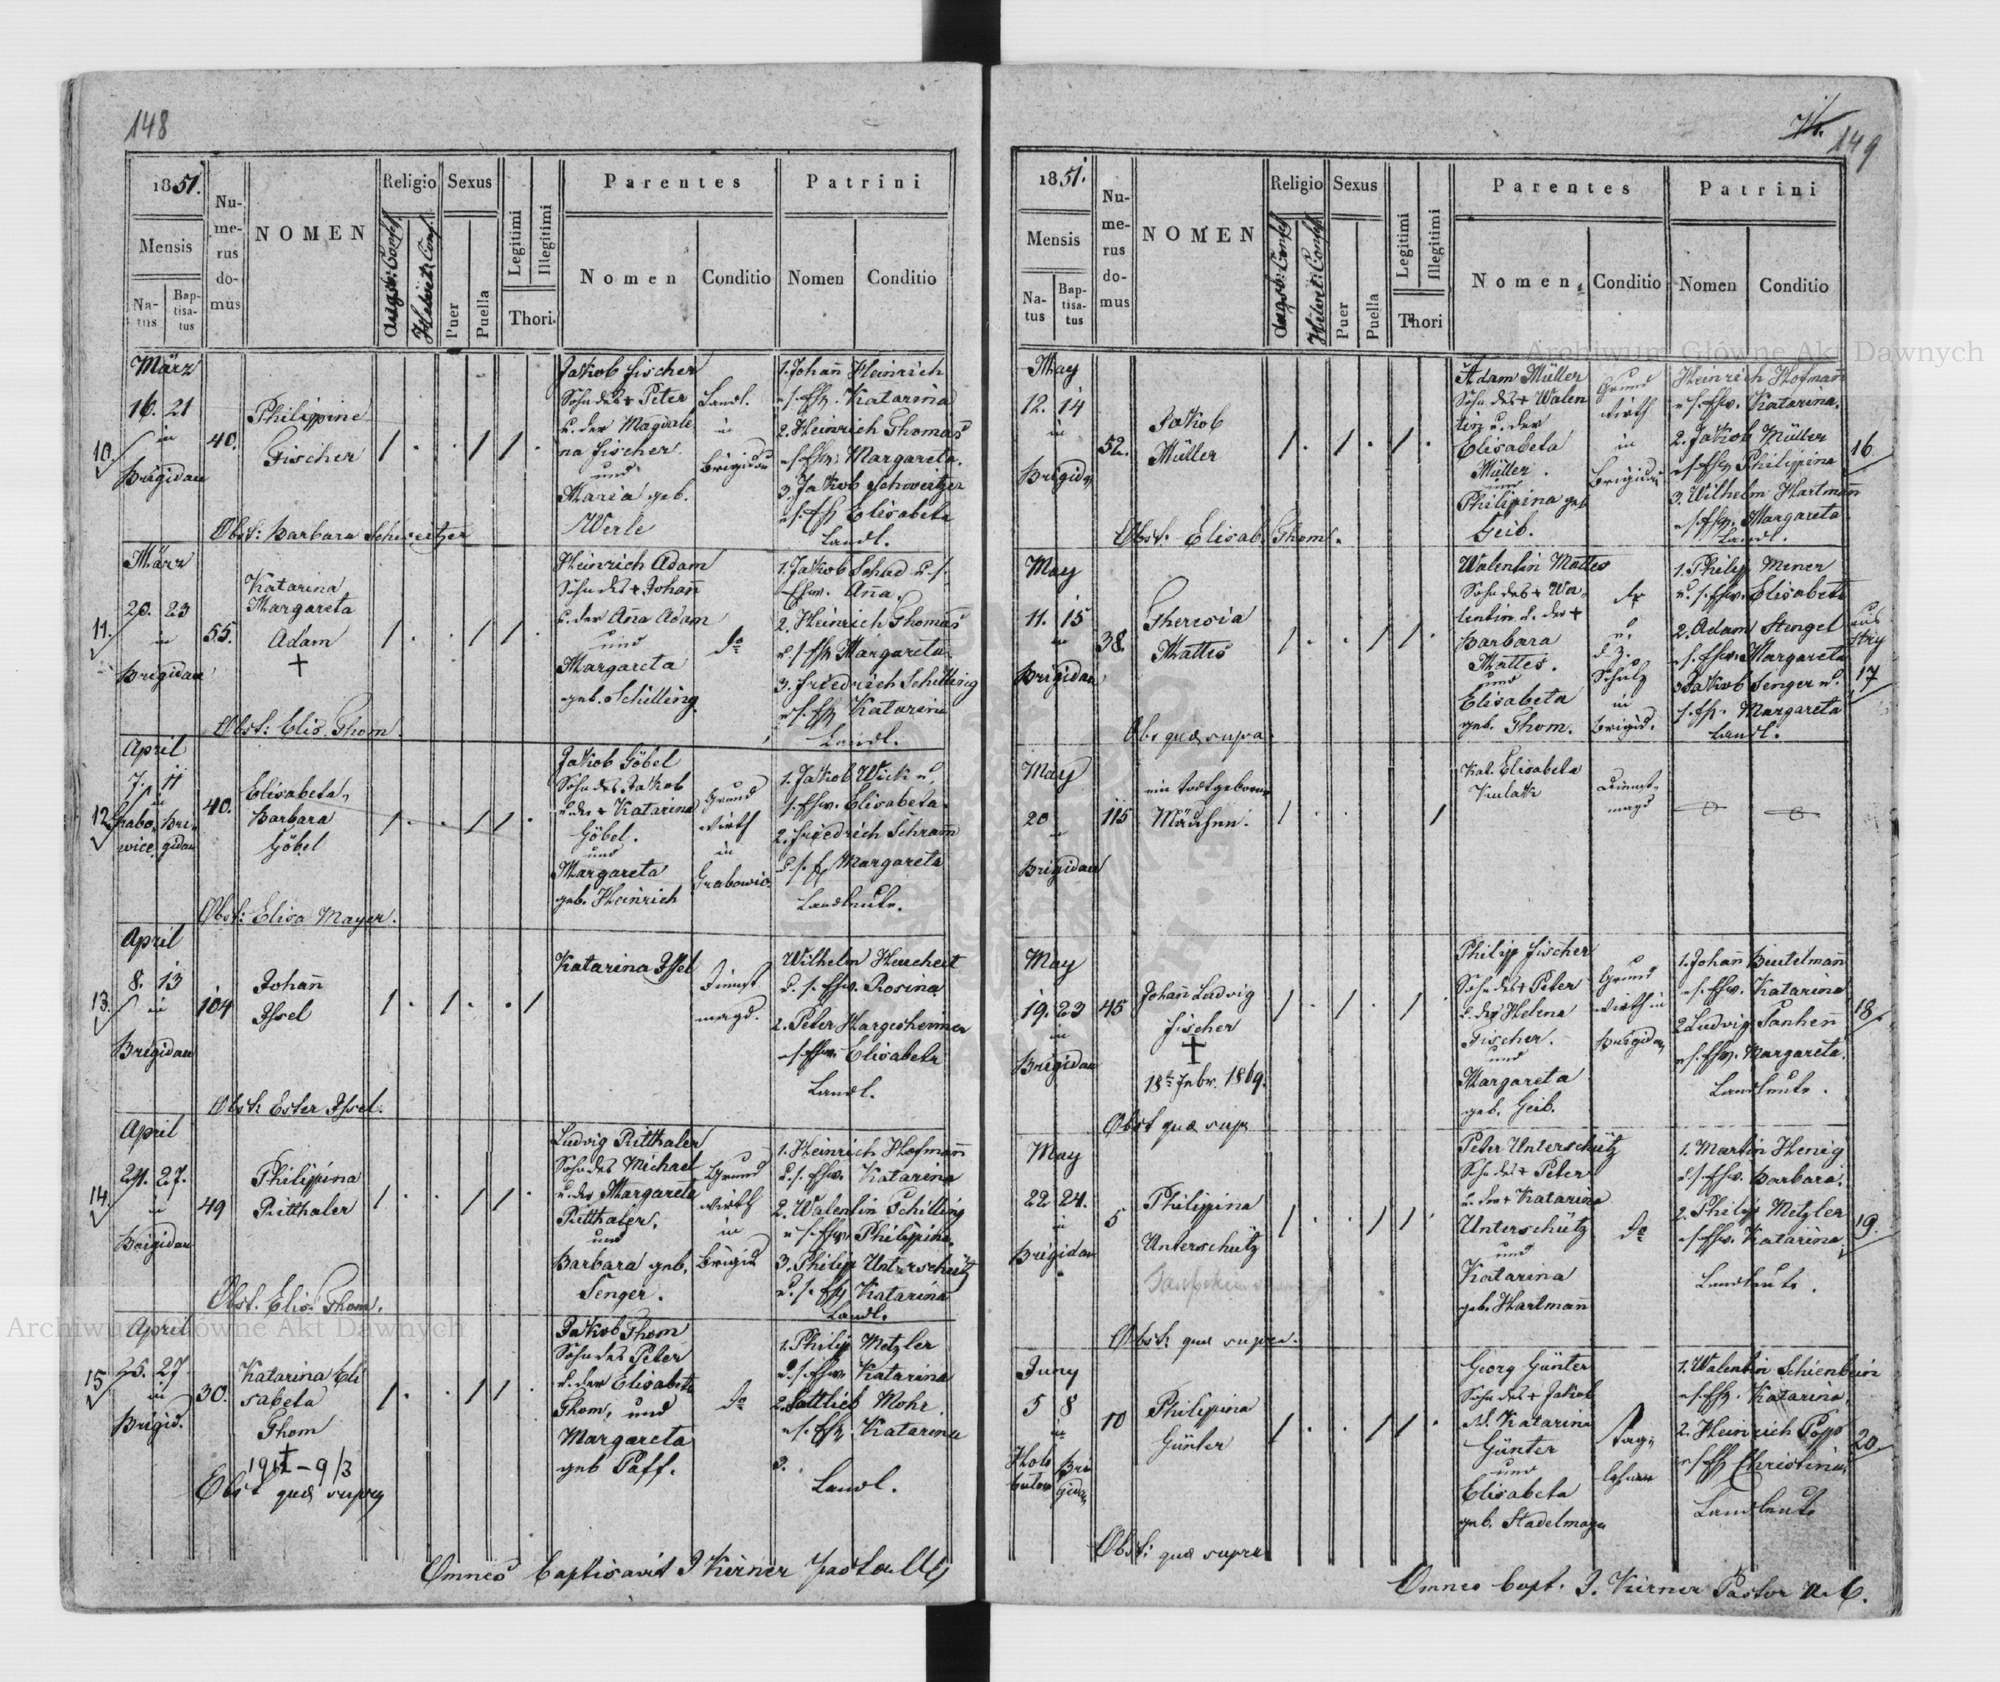 148
1851.
Mensis
Natus
Baptisatus
Numerus domus
NOMEN
Religio
Augsb: Conf.
Helvet: Conf.
Sexus
Puer
Puella
Legitimi
Illegitimi
Thori.
Parentes
Nomen
Conditio
Patrini
Nomen
Conditio
März
16. 21
in
Brigidau
10.
40.
Philippine
Fischer
Jakob Fischer
Sohn des + Peter
u. der Magdale
na Fischer
und
Maria geb.
Werle
Landl.
in
Brigidau
1. Johañ Heinrich
u. s. Ehw. Katarina
2. Heinrich Thomas
u. s. Ehw. Margareta.
3. Jakob Schweitzer
u. s. Eh Elisabeta
Landl.
Obst: Barbara Schweitzer
März
20. 23
in
Brigidau
11.
55.
Katarina
Margareta
Adam
+
Heinrich Adam
Sohn des + Johañ
u. der Aña Adam
und
Margareta
geb. Schilling
do
1. Jakob Schad u. s.
Ehw. Aña.
2. Heinrich Thomas
u. s. Eh Margareta
3. Friedrich Schilling
u. s. Eh Katarina
Landl.
Obst: Elis. Thom
April
7. 11
in
Grabo- Bri-
wice gidau
12.
40.
Elisabeta,
Barbara
Göbel
Jakob Göbel
Sohn des Jakob
u. der + Katarina
Göbel.
und
Margareta
geb. Heinrich
Grund
wirth
in
Grabowic
1. Jakob Wick u.
s. Ehw. Elisabeta
2. Friedrich Schram̃
u. s. E Margareta
Landleute.
Obst: Elisa Mayer.
April
8. 13
in
Brigidau
13.
104
Johañ
Issel
Katarina Issel
Dienst
magd.
Wilhelm Heuchert
u. s. Ehw. Rosina
2. Peter Hargesheimer
u. s. Ehw. Elisabeta
Landl.
Obst. Ester Issel.
April
24. 27.
in
Brigidau
14.
49
Philippina
Ritthaler
Ludvig Ritthaler
Sohn des Michael
u. der Margareta
Ritthaler.
und
Barbara geb.
Senger.
Grund
wirth
in
Brigid
1. Heinrich Hofmañ
u. s. Ehw. Katarina
2. Walentin Schilling
u. s. Ehw. Philippina.
3. Philip Unterschütz
u. s. Eh Katarina
Landl.
Obst. Elis. Thom.
April
25. 27
in
Brigid.
15
30.
Katarina Eli
sabeta
Thom
+
Jakob Thom
Sohn des Peter
u. der Elisabeta
Thom, und
Margareta
geb Paff.
do
1. Philip Metzler
u. s. Ehw. Katarina
2. Gottlieb Mohr
u. s. Eh. Katarina
3.
Landl.
Obst quæ supra
Omnes baptisavit J Kirner Pastor
149
1851.
Mensis
Natus
Baptisatus
Numerus domus
NOMEN
Religio
Augsb: Conf
Helvet: Conf
Sexus
Puer
Puella
Legitimi
Illegitimi
Thori
Parentes
Nomen
Conditio
Patrini
Nomen
Conditio
May
12. 14
in
Brigidau
52.
Jakob
Müller
Adam Müller
Sohn des + Walen
tin u. der
Elisabeta
Müller.
und
Philippina geb
Geib.
Grund
wirth
in
Brigidau
Heinrich Hofmañ
u. s. Ehw. Katarina.
2. Jakob Müller
u. s. Ehw Philippina
3. Wilhelm Hartmañ
u. s. Ehw. Margareta
Landl.
16
Obst. Elisab. Thom.
May
11. 15
in
Brigidau
38.
Theresia
Mattes
Walentin Mattes
Sohn des + Wa-
lentin u. der +
Barbara
Mattes.
und
Elisabeta
geb. Thom.
do
u.
d. z.
Schulz
in
Brigid.
1. Philip Mener
u. s. Ehw. Elisabeta
2. Adam Stengel
u. s. Ehw. Margareta
3. Jakob Senger u.
s. Eh. Margareta
Landl.
aus
Stry
17
Obs quæ supra.
May
20
in
Brigidau
115
ein todtgebornes
Mädchen.
Kat. Elisabeta
Kulak
Dienst-
magd
May
19. 23
in
Brigidau
45
Johañ Ludvig
Fischer
+
18t Febr. 1869.
Philip Fischer
Sohn des + Peter
u. der Helena
Fischer.
und
Margareta
geb. Geib.
Grund
wirth in
Brigidau
1. Johañ Beutelmañ
u. s. Ehw. Katarina
2. Ludvig Sanheñ
u. s. Ehw. Margareta.
Landleute.
18
Obst quæ supr
May
22. 24.
in
Brigidau
5
Philippina
Unterschütz
Peter Unterschütz
Sohn des + Peter
u. der + Katarina
Unterschütz
und
Katarina
geb. Hartmañ
do
1. Martin Henig
u. s. Ehw. Barbara.
2. Philip Metzler
u. s. Ehw. Katarina
Landleute.
19.
Obst: quæ supra.
Juny
5 8
in
Bri
gidau
10
Philippina
Günter
Georg Günter
Sohn des + Jakob
u. Katarina
Günter
und
Elisabeta
geb. Stadelmayer
Tag-
löhner
1. Walentin Schienbein
u. s. Eh. Katarina
2. Heinrich Popp
u. s. Eh Christina
Landleute
20
Obst: quæ supra
Omnes bapt. J. Kirner Pastor A. C.
Archiwum Główne Akt Dawnych
Archiwum Główne Akt Dawnych